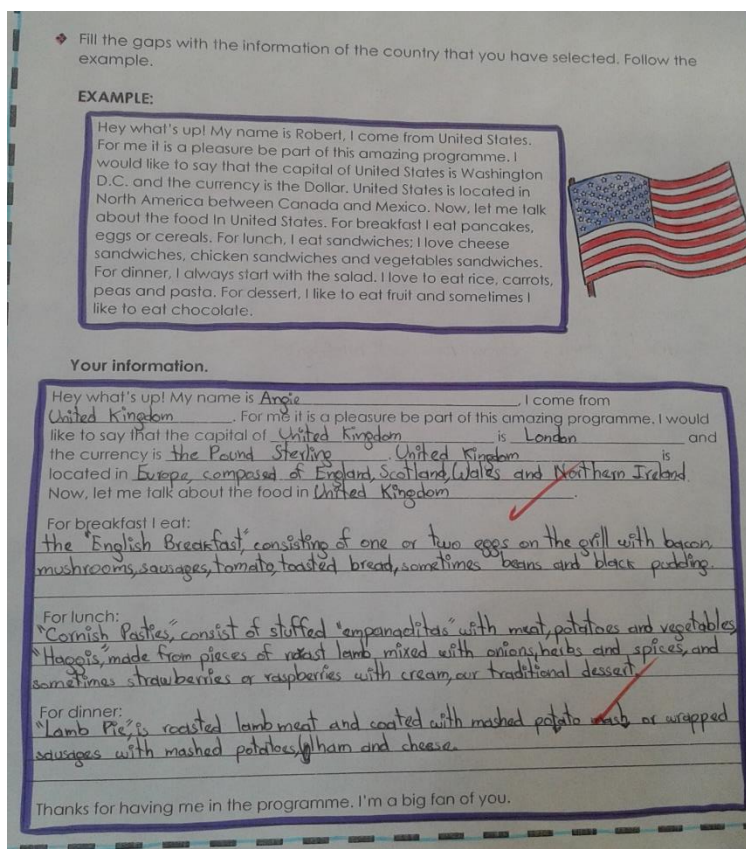 Fill the gaps with the information of the country that you have selected. Follow the
example.
EXAMPLE:
Hey what's up! My name is Robert, I come from United States.
For me it is a pleasure be part of this amazing programme. I
would like to say that the capital of United States is Washington
D.C. and the currency is the Dollar. United States is located in
North America between Canada and Mexico. Now, let me talk
about the food In United States. For breakfast I eat pancakes,
eggs or cereals. For lunch, I eat sandwiches; I love cheese
sandwiches, chicken sandwiches and vegetables sandwiches.
For dinner, I always start with the salad. I love to eat rice, carrots,
peas and pasta. For dessert, I like to eat fruit and sometimes I
like to eat chocolate.
Your information.
Hey what's up! My name is Angie, I come from
United Kingdom. For me it is a pleasure be part of this amazing programme. I would
like to say that the capital of United Kingdom is London and
the currency is the Pound Sterling. United Kingdom is
located in Europe, composed of England, Scotland, Wales and Northern Ireland.
Now, let me talk about the food in United Kingdom.
For breakfast I eat:
the "English Breakfast," consisting of one or two eggs on the grill with bacon,
mushrooms, sausages, tomato, toasted bread, sometimes beans and black pudding.
For lunch:
"Cornish Pasties", consist of stuffed "empanaditas" with meat, potatoes and vegetables,
"Haggis", made from pieces of roast lamb mixed with onions, herbs and spices, and
sometimes strawberries or raspberries with cream, our traditional dessert.
For dinner:
"Lamb Pie", is roasted lamb meat and coated with mashed potato mash or wrapped
sausages with mashed potatoes, ham and cheese.
Thanks for having me in the programme. I'm a big fan of you.